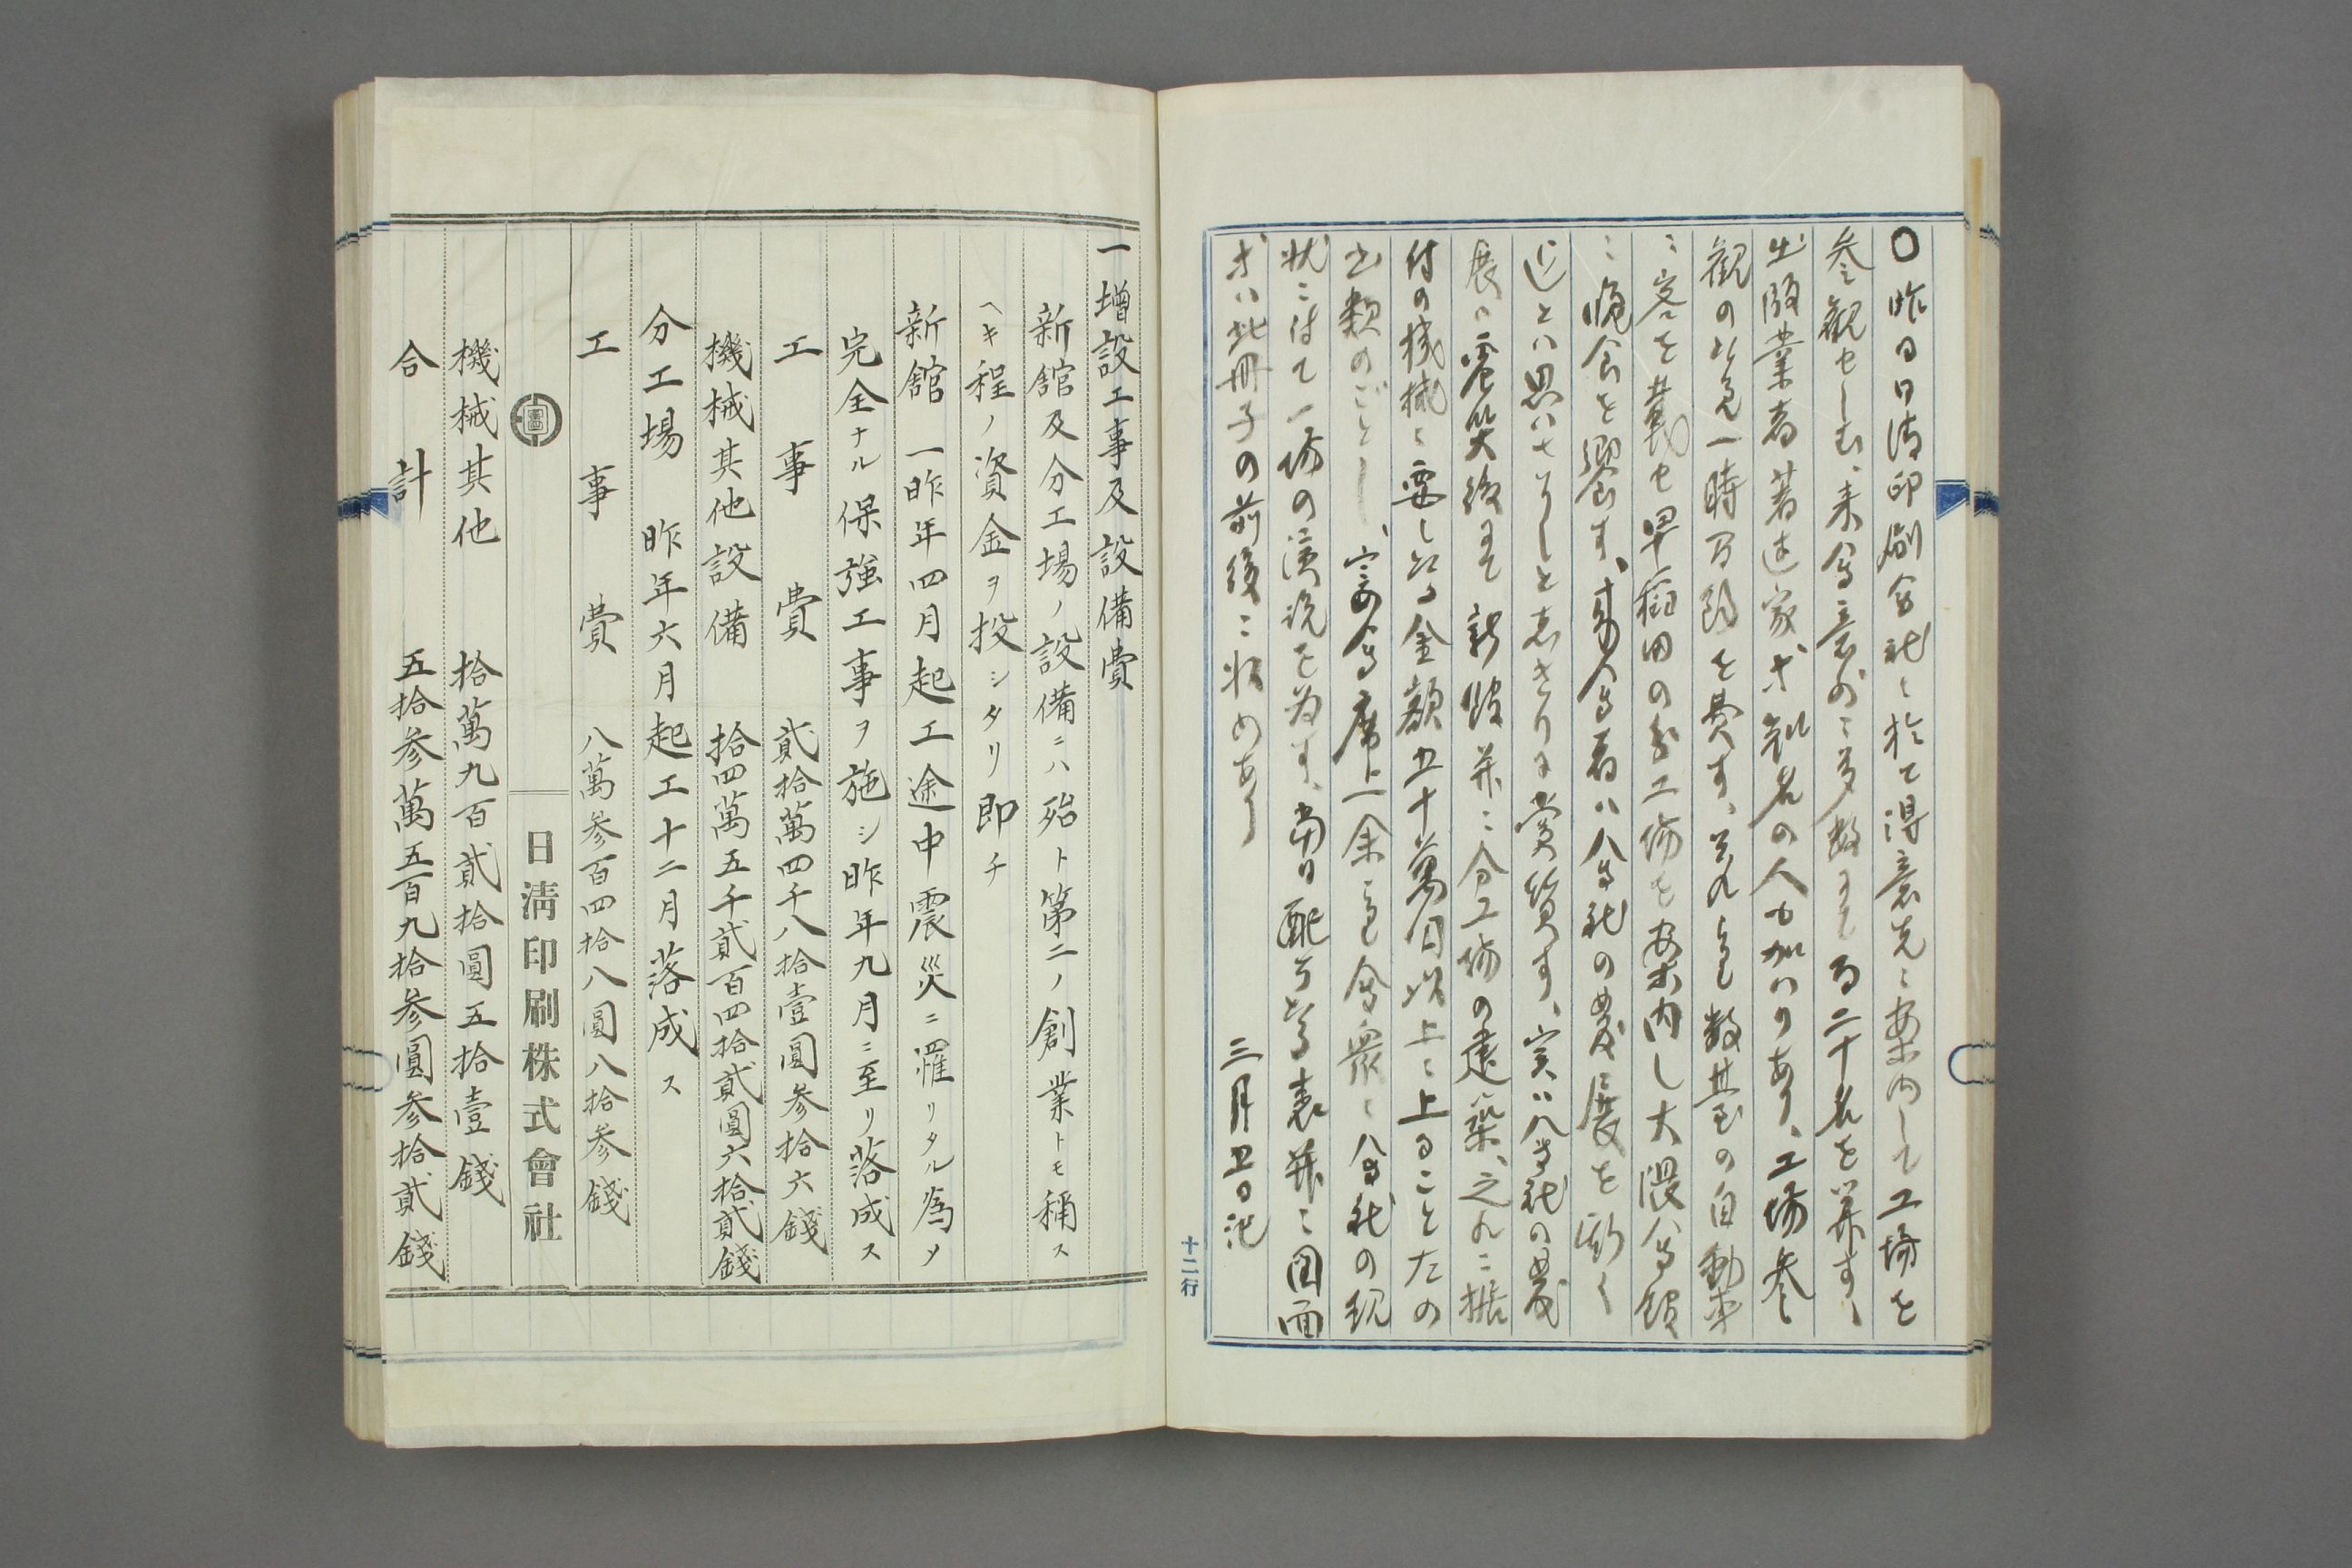 〇昨日日清印刷会社ニ於て得意先ニ案内して工場を
参観せしむ、来会意外ニ多数にて百二十名を算す、
出版業者著述家等知名の人も加ハりあり、工場参
観の後一時間を費す、それより数台の自動車
ニ客を載せ早稲田の分工場を案内し大隈会館
ニ晩食を饗す、来会者ハ会社の発展を斯く
迄とハ思ハさりしと志きりに賞賛す、実ハ会社の発
展ハ震災後にて新館并ニ分工場の建築、之れニ据
付の機械ニ要したる金額五十萬円以上ニ上ることたの
書類のごとし、宴会席上余は会衆ニ会社の現
状ニ付て一場の演説を為す、当日配布せる表并ニ図面
等ハ此冊子の前後ニ収めあり
三月五日記
十二行
一増設工事及設備費
新舘及分工場ノ設備ニハ殆ト第二ノ創業トモ稱ス
ヘキ程ノ資金ヲ投シタリ即チ
新舘 一昨年四月起工途中震災ニ罹リタル為メ
完全ナル保強工事ヲ施シ昨年九月ニ至リ落成ス
工事費 貳拾萬四千八拾壹圓参拾六錢
機械其他設備 拾四萬五千貳百四拾貳圓六拾貳錢
分工場 昨年六月起工十二月落成ス
工事費 八萬参百四拾八圓八拾参錢
日清印刷株式會社
機械其他 拾萬九百貳拾圓五拾壹錢
合計 五拾参萬五百九拾参圓参拾貳錢